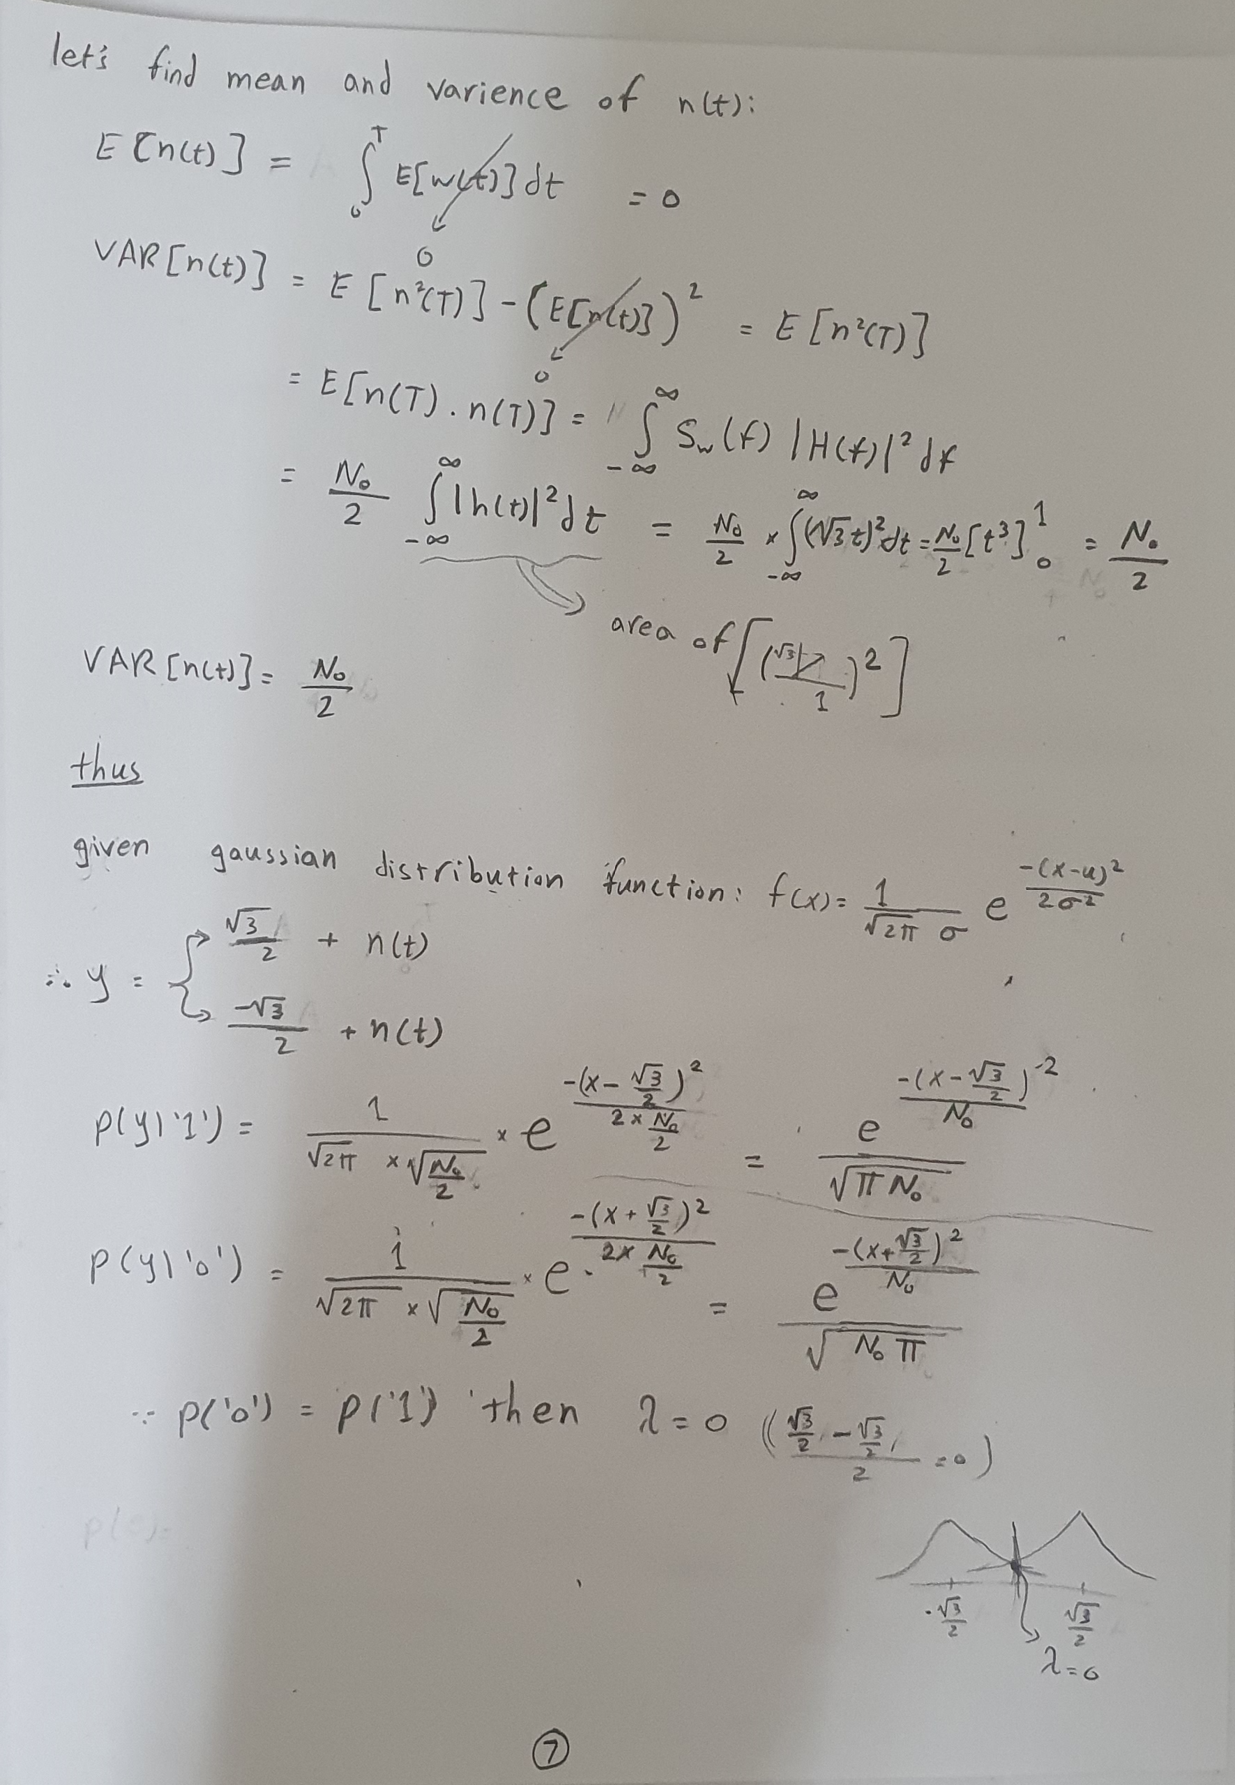 let's find mean and varience of n(t):
E[n(t)] = ∫₀ᵀ E[w(t)]dt = 0
0
VAR[n(t)] = E[n²(T)] - (E[n(t)])² = E[n²(T)]
0
= E[n(T).n(T)] = ∫_{-∞}^{∞} S_w(f) |H(f)|² df
= N₀/2 ∫_{-∞}^{∞} |h(t)|² dt = N₀/2 × ∫_{-∞}^{∞} (√3 t)² dt = N₀/2 [t³]₀¹ = N₀/2
area of [(√3 1)²]
VAR[n(t)] = N₀/2
thus
given gaussian distribution function: f(x) = 1/(√2π σ) e^{-(x-u)²/2σ²}
∴ y = { √3/2 + n(t)
-√3/2 + n(t)
p(y|'1') = 1/(√2π × √(N₀/2)) × e^{-(x-√3/2)²/(2×N₀/2)} = e^{-(x-√3/2)^{-2}/N₀}/√(π N₀)
p(y|'0') = 1/(√2π × √(N₀/2)) × e^{-(x+√3/2)²/(2×N₀/2)} = e^{-(x+√3/2)²/N₀}/√(N₀ π)
∵ p('0') = p('1') then λ=0 ((√3/2 - √3/2)/2 = 0)
p(e)=
-√3/2 √3/2
λ=0
7